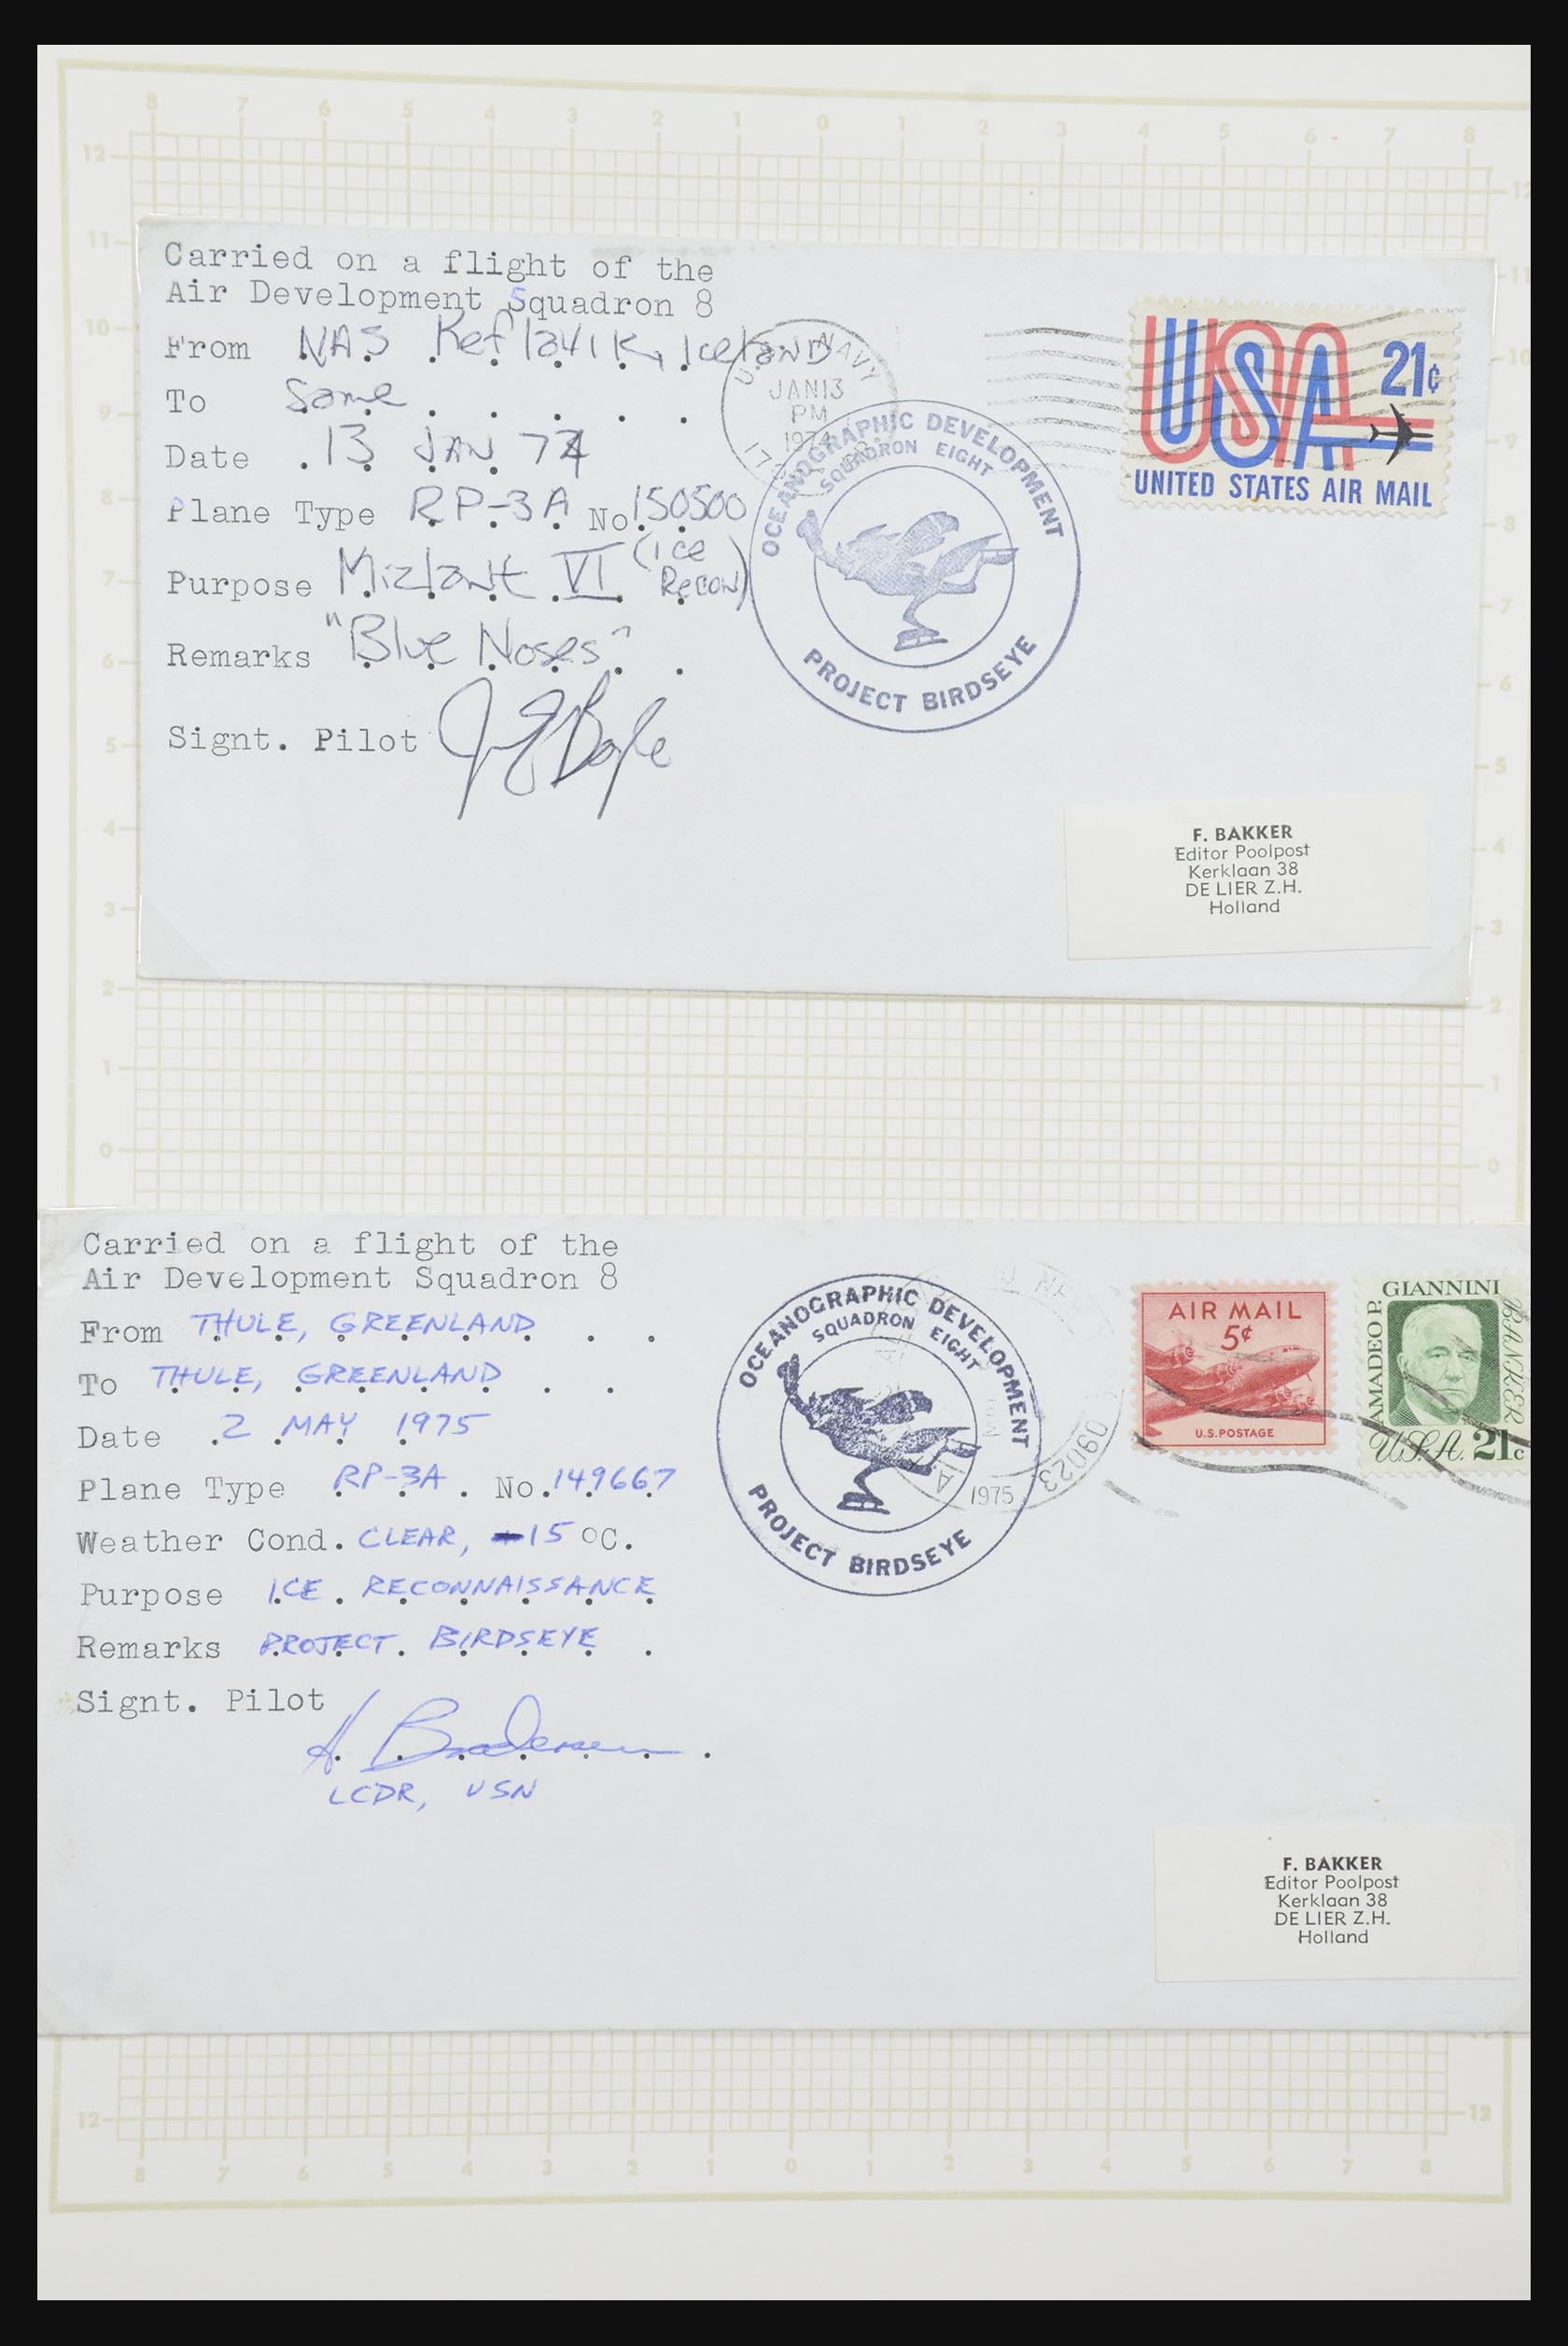 Carried on a flight of the
Air Development Squadron 8
From NAS Keflavik, Iceland
To Same
Date 13 JAN 74
Plane Type RP-3A No. 150500
Purpose Mizlant VI (ice Recon)
Remarks "Blue Noses"
Signt. Pilot
U.S. NAVY
JAN 13
PM
OCEANOGRAPHIC DEVELOPMENT
SQUADRON EIGHT
PROJECT BIRDSEYE
USA 21¢
UNITED STATES AIR MAIL
F. BAKKER
Editor Poolpost
Kerklaan 38
DE LIER Z.H.
Holland
Carried on a flight of the
Air Development Squadron 8
From THULE, GREENLAND
To THULE, GREENLAND
Date 2 MAY 1975
Plane Type RP-3A No. 149667
Weather Cond. CLEAR, -15 °C.
Purpose ICE RECONNAISSANCE
Remarks PROJECT BIRDSEYE
Signt. Pilot
LCDR, USN
OCEANOGRAPHIC DEVELOPMENT
SQUADRON EIGHT
PROJECT BIRDSEYE
09023
1975
AIR MAIL
5¢
U.S. POSTAGE
AMADEO P. GIANNINI BANKER
U.S.A. 21c
F. BAKKER
Editor Poolpost
Kerklaan 38
DE LIER Z.H.
Holland
8 7 6 5 4 3 2 1 0 1 2 3 4 5 6 7 8
12 11 10 9 8 7 6 5 4 3 2 1 0
12 11 10 9 8 7 6 5 4 3 2 1 0
12 12
8 7 6 5 4 3 2 1 0 1 2 3 4 5 6 7 8